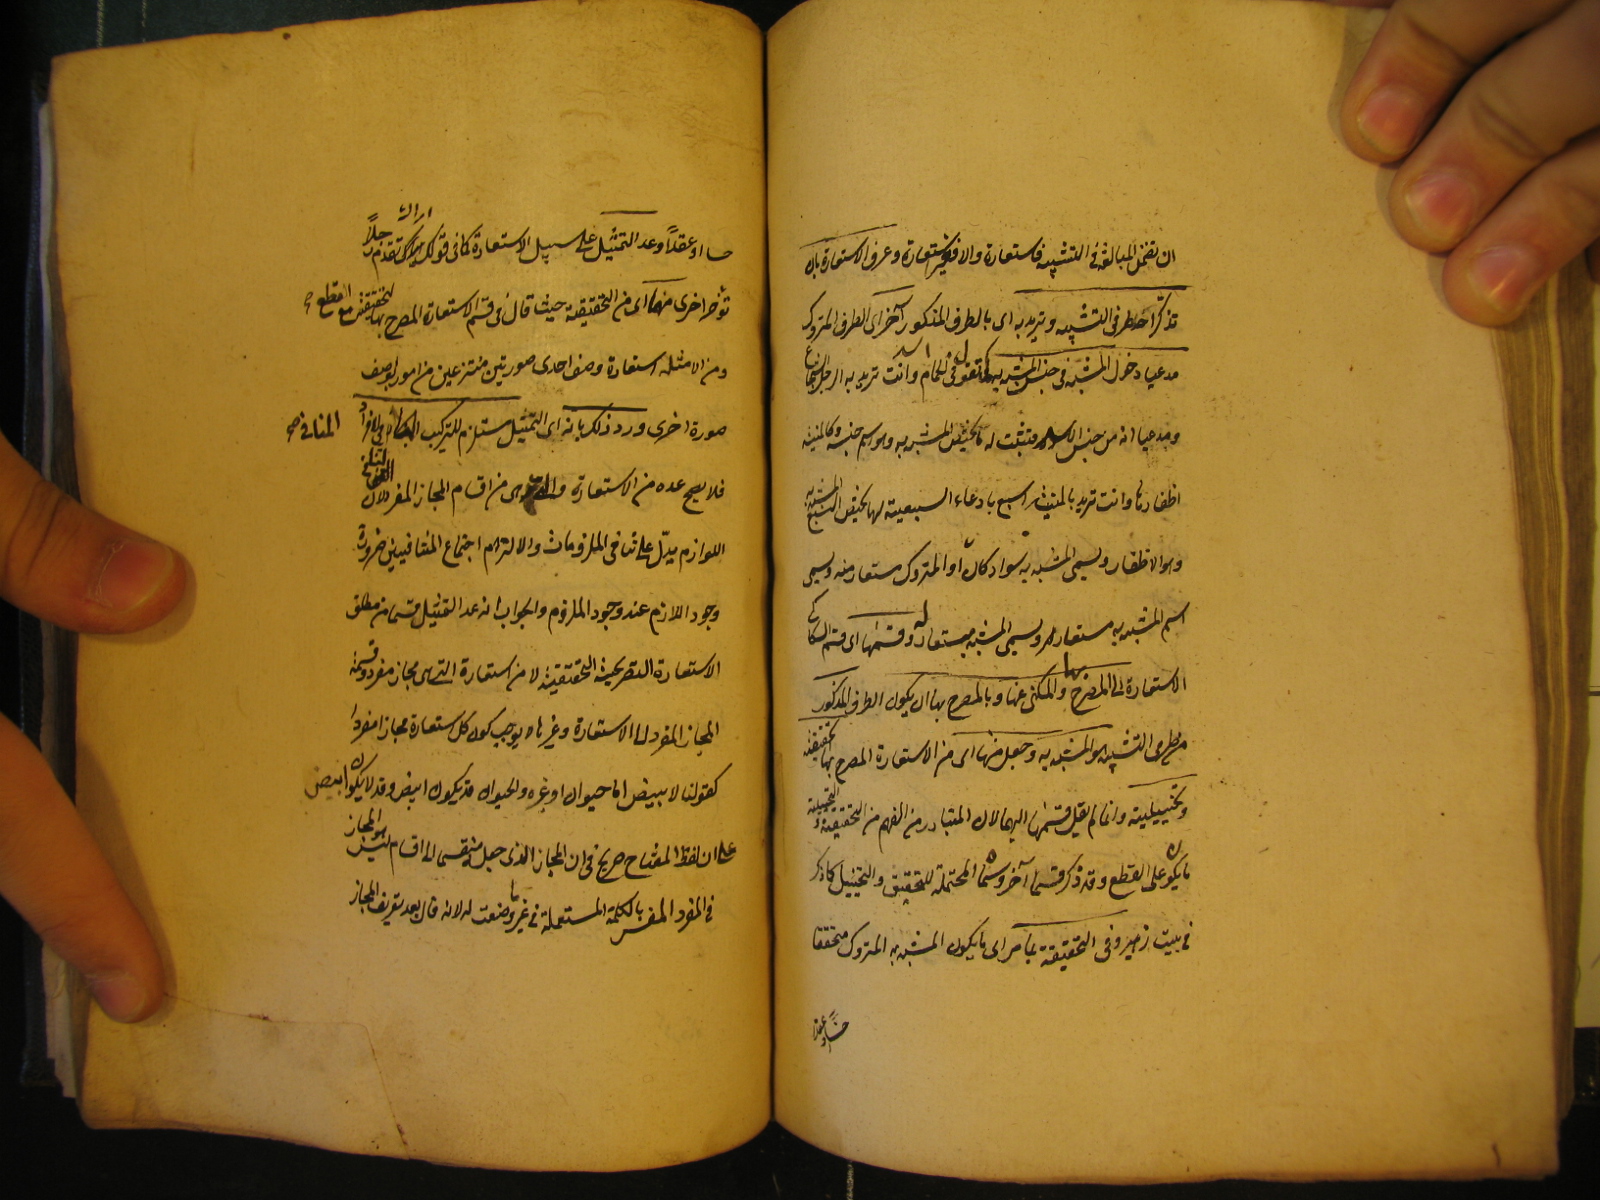 ان تضمن المبالغة في التشبيه فاستعارة والا فغير استعارة وعرف الاستعارة بان
تذكر احد طرفي التشبيه وتريد به اي بالطرف المذكور الآخر اي الطرف المتروك
مدعيا دخول المشبه في جنس المشبه به كما تقول في الحمام اسد وانت تريد به الرجل الشجاع
ومدعيا انه من جنس الاسد فتثبت له ما يخص المشبه به وهو اسم جنسه وكالمنية
اظفارها وانت تريد بالمنية السبع بادعاء السبعية لها فتثبت لها ما يخص السبع المشبه به
وهو الاظفار ويسمى المشبه به سواء كان او المتروك مستعار منه ويسمى
اسم المشبه به مستعارا ويسمى المشبه مستعار له وقسمها اي قسم السكاكي
الاستعارة الى المصرح بها والمكنى عنها وبالمصرح بها ان يكون الطرف المذكور
من طرفي التشبيه هو المشبه به وجعل منها اي من الاستعارة المصرح بها تحقيقية
وتخييلية وانما لم يقل قسمها اليهما لان المتبادر من الفهم من التحقيقية والتخييلية
ما يكون على القطع وقد ذكر قسما آخر وسماه المحتملة للتحقيق والتخييل كما ذكر
في بيت زهير وفي التحقيقة بما مر اي ما يكون المشبه به المتروك متحققا
حسا او عقلا
حسا او عقلا وعد التمثيل على سبيل الاستعارة كما في قولك اراك تقدم رجلا
وتؤخر اخرى منها اي من التحقيقية حيث قال في قسم الاستعارة المصرح بها التحقيقية مع القطع
ومن الامثلة استعارة وصف احدى صورتين منتزعين من امور لوصف
صورة اخرى ورد ذلك بانه اي التمثيل مستلزم للتركيب المنافي للافراد
فلا يصح عده من الاستعارة التي هي من اقسام المجاز المفرد لان تنافي
اللوازم يدل على تنافي الملزومات والا لزم اجتماع المتنافيين ضرورة
وجود اللازم عند وجود الملزوم والجواب انه عد التمثيل قسما من مطلق
الاستعارة التصريحية التحقيقية لا من استعارة التي هي مجاز مفرد وقسمة
المجاز المفرد الى الاستعارة وغيرها لا يوجب كون كل استعارة مجازا مفردا
كقولنا الابيض اما حيوان او غيره والحيوان قد يكون ابيض وقد لا يكون ابيض
على ان لفظ المفتاح صريح في ان المجاز الذي جعل منقسم الى اقسام ليس هو المجاز
في المفرد المفسر بالكلمة المستعملة في غير ما وضعت له لانه قال بعد تعريف المجاز